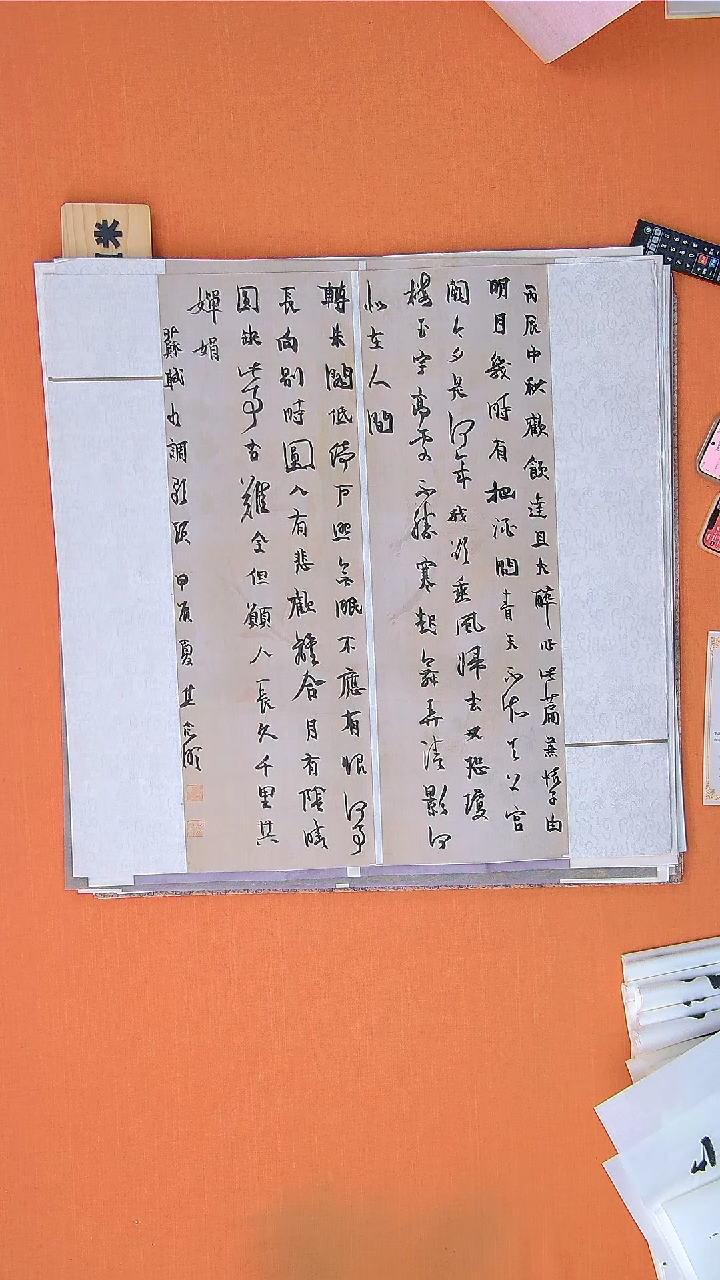 丙辰中秋歡飲達旦大醉作此篇兼懷子由
明月幾時有把酒問青天不知天上宮
闕今夕是何年我欲乘風歸去又恐瓊
樓玉宇高處不勝寒起舞弄清影何
似在人間
轉朱閣低綺戶照無眠不應有恨何事
長向別時圓人有悲歡離合月有陰晴
圓缺此事古難全但願人長久千里共
嬋娟
蘇軾水調歌頭 甲辰夏